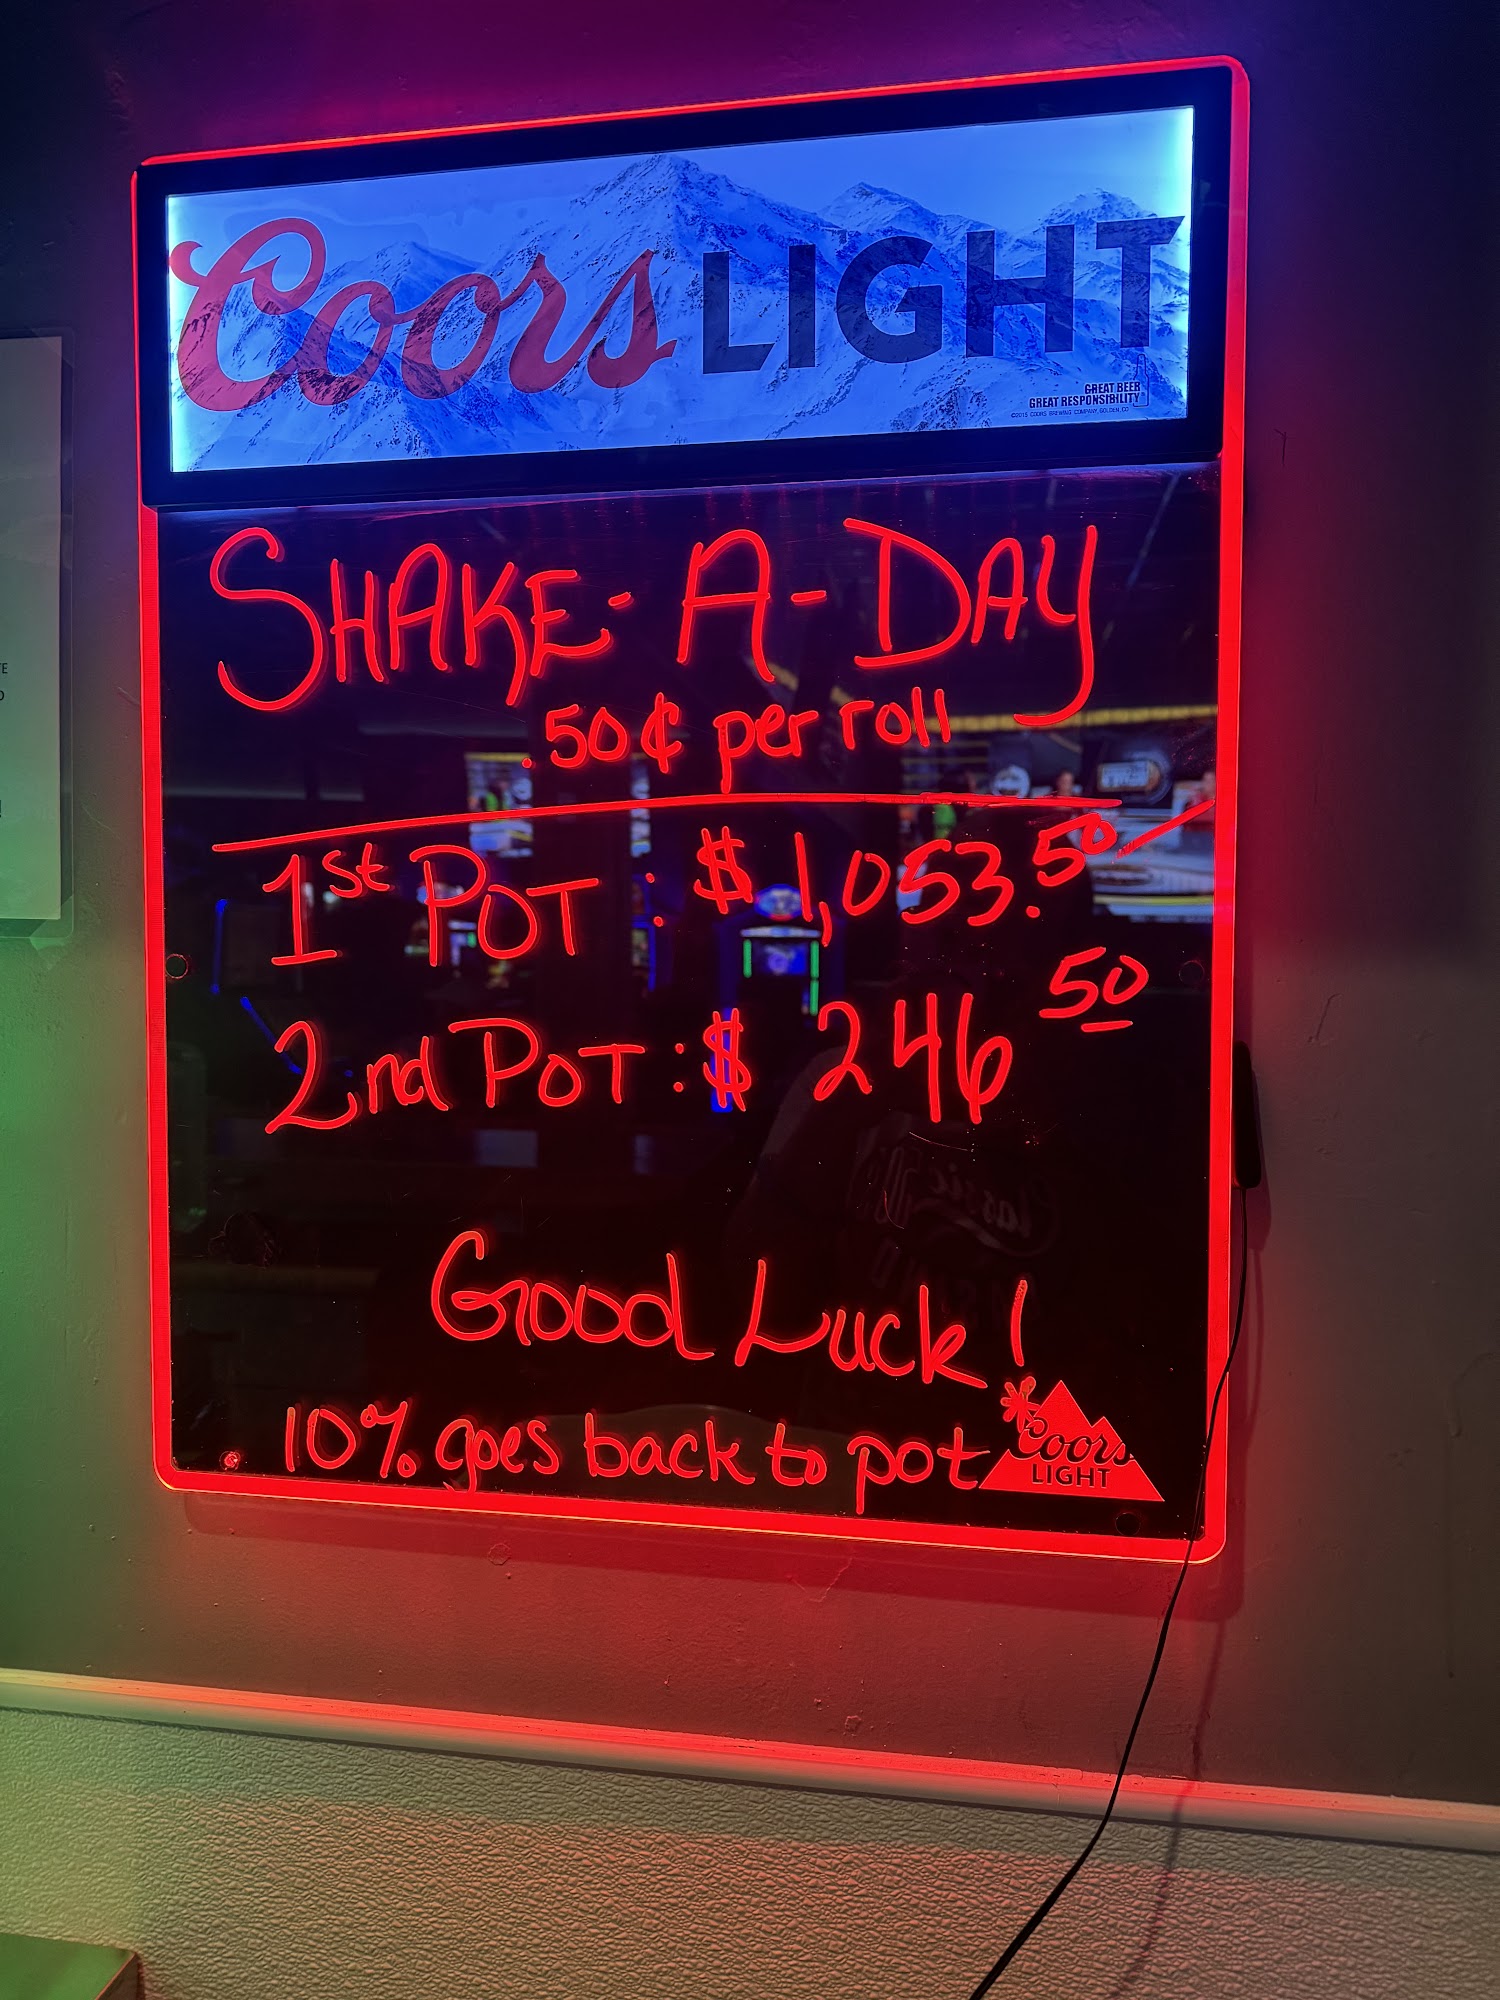 Coors LIGHT
GREAT BEER
GREAT RESPONSIBILITY®
©2015 COORS BREWING COMPANY, GOLDEN, CO
SHAKE-A-DAY
.50¢ per roll
1st POT: $1,053.50
2nd POT: $ 246 50
Good Luck!
10% goes back to pot
Coors
LIGHT